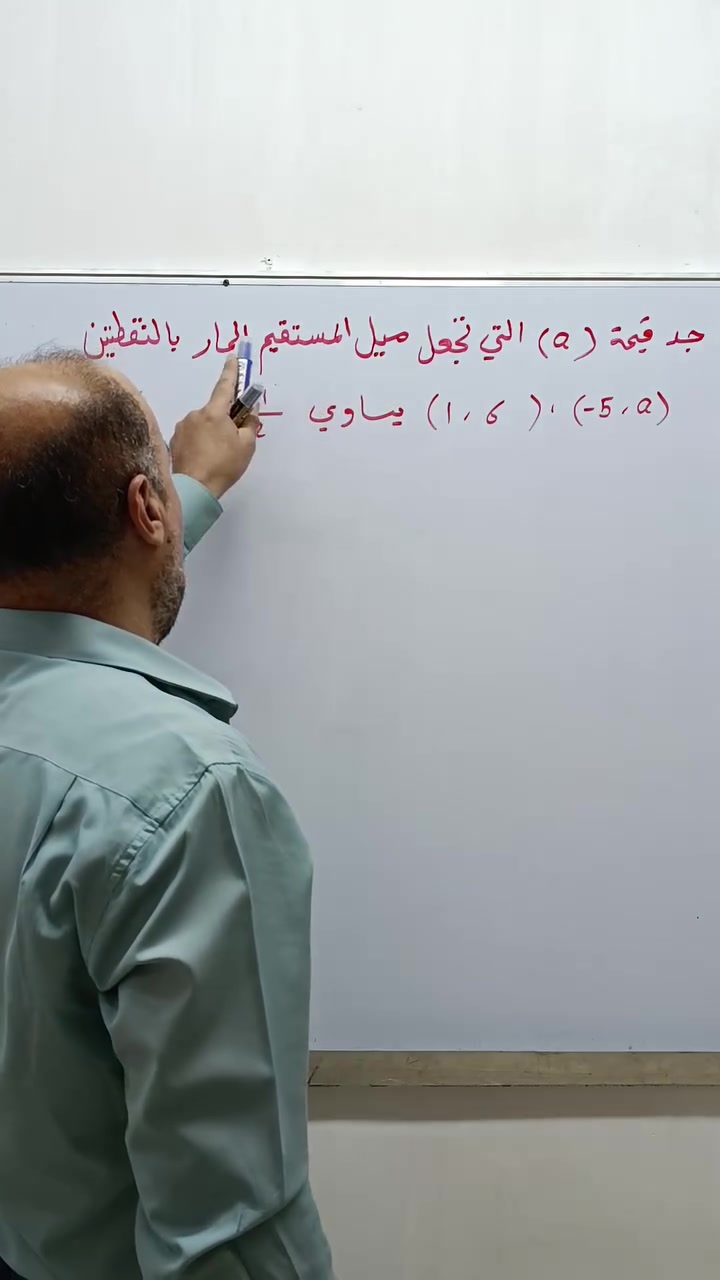 جد قيمة (a) التي تجعل ميل المستقيم المار بالنقطتين
(-5, a) ، (1, 6) يساوي